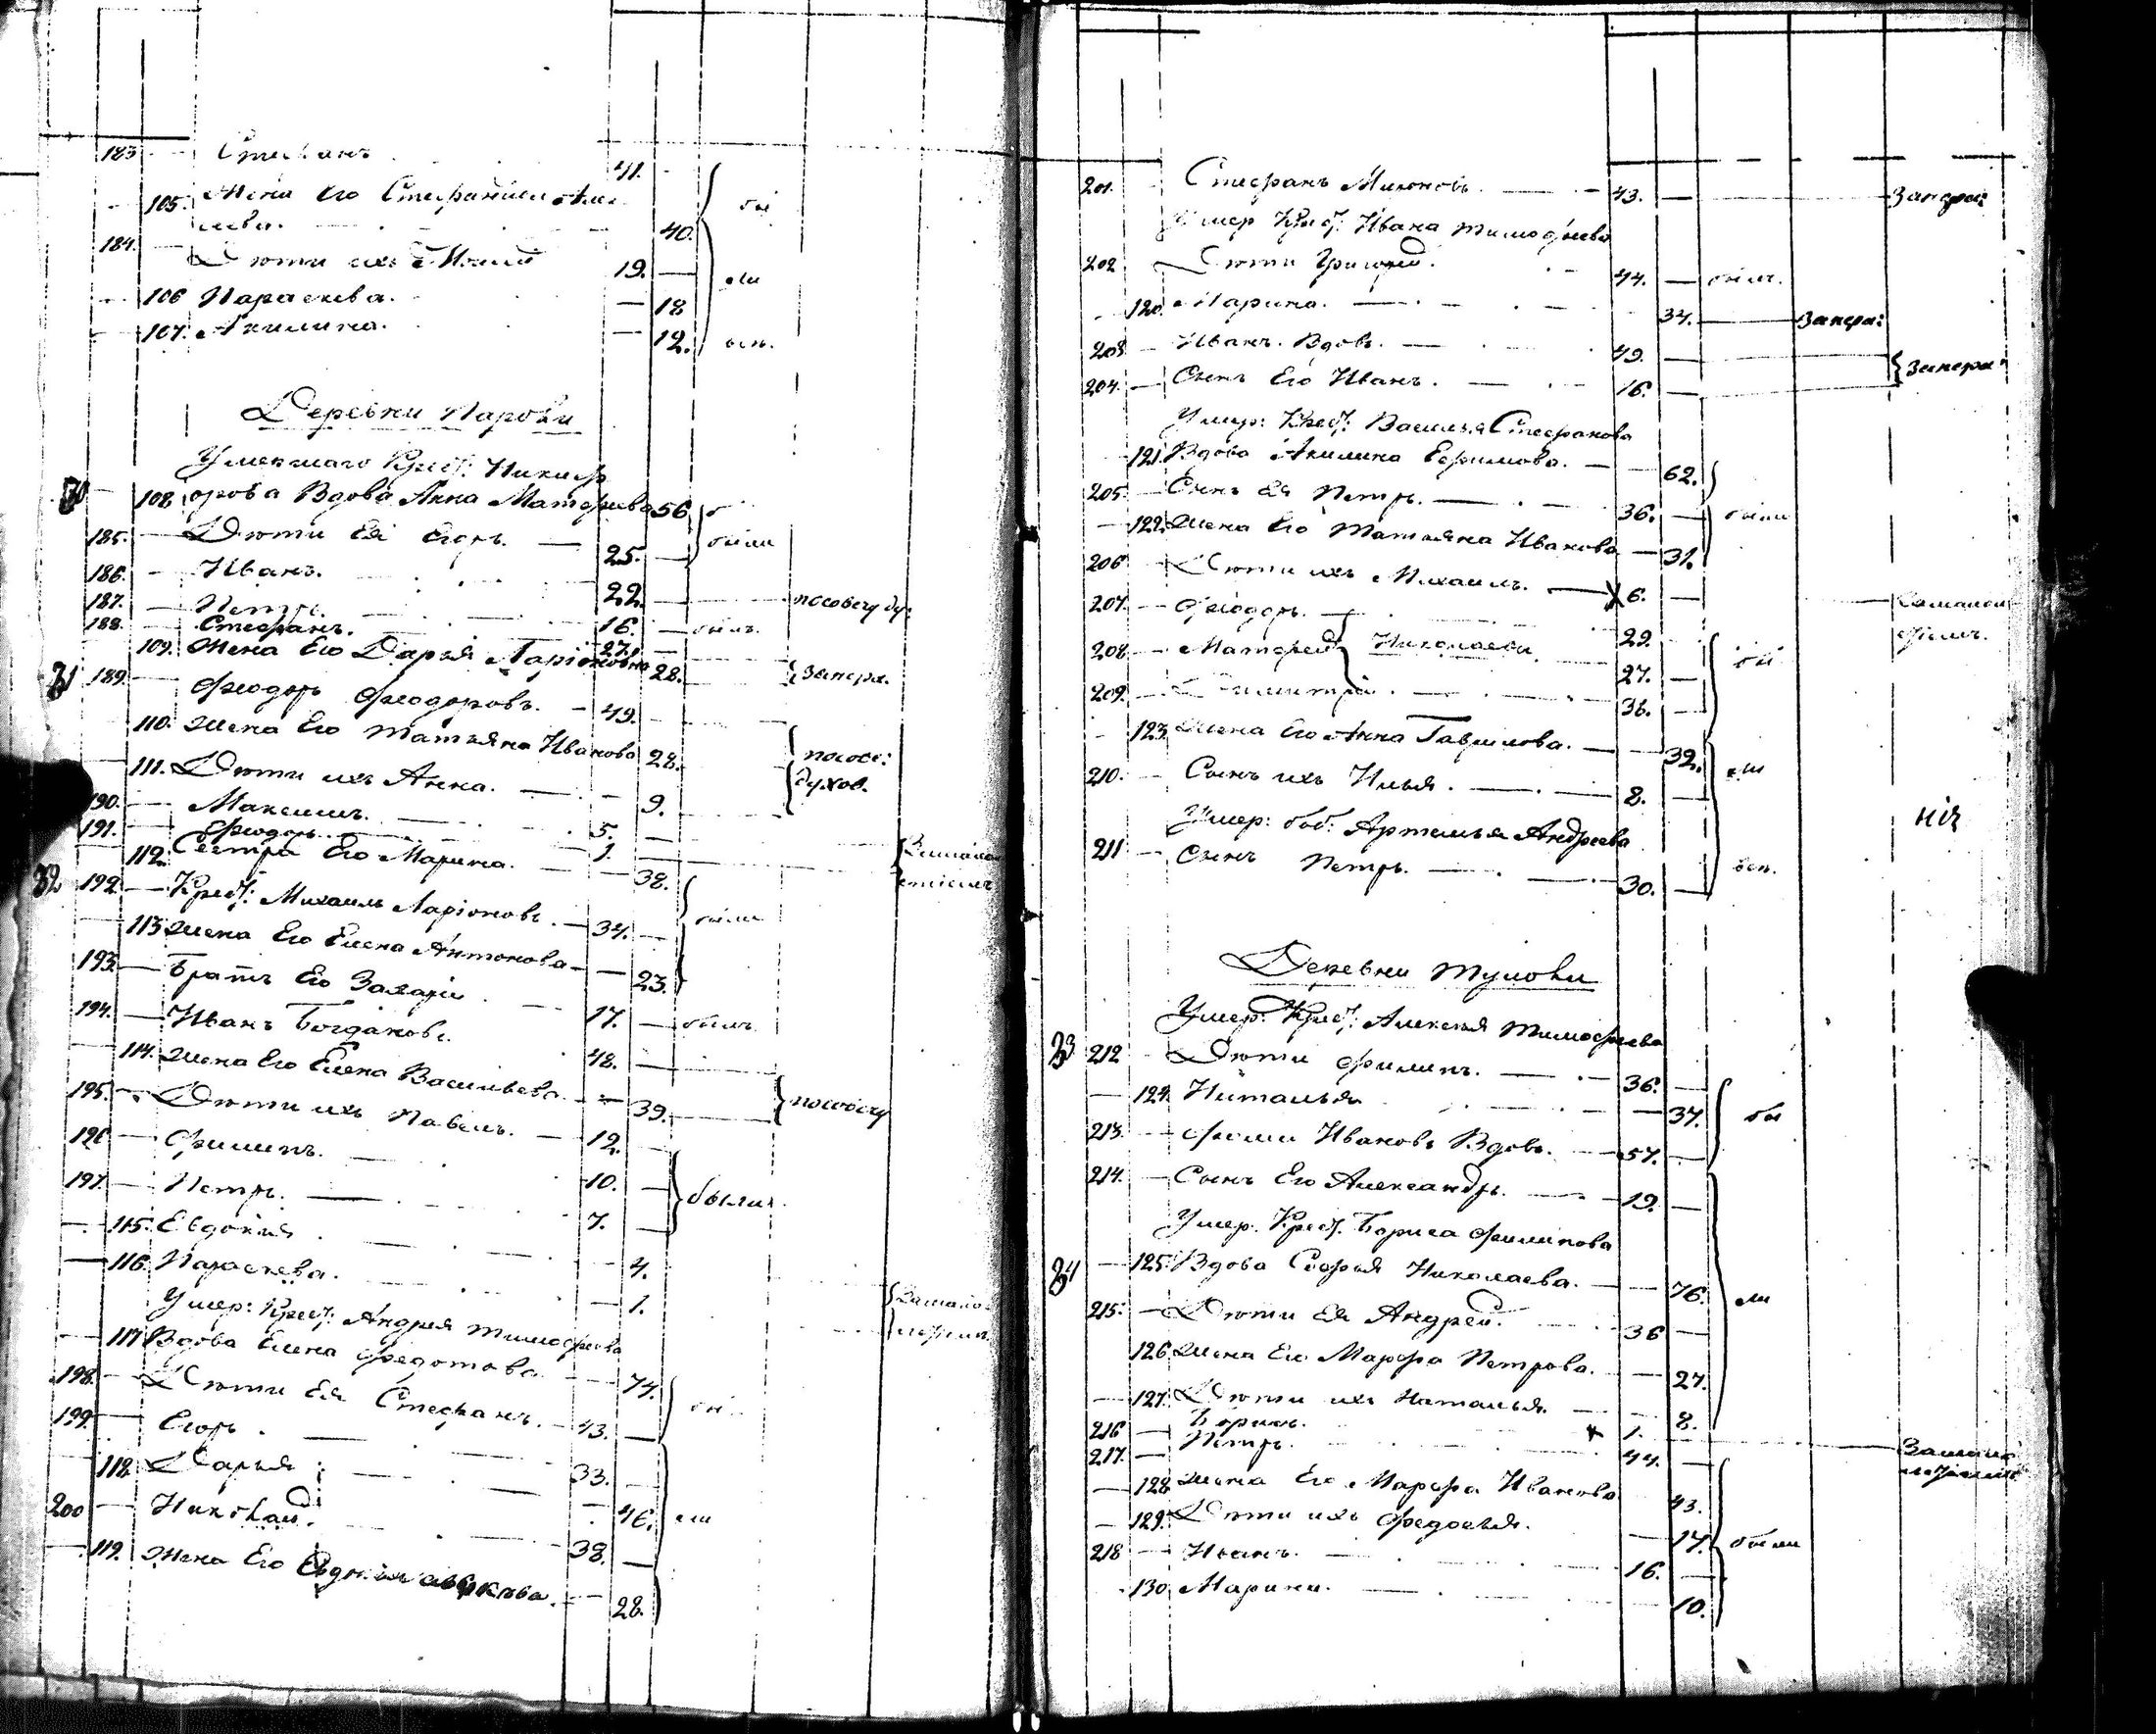 183 Стефанъ 41.
105. Жена Его Стефанида Але
ева. 40.
184. Дѣти ихъ Моисей 19.
106 Параскева. 18
107. Акилина. 12.
бы
ли
исп.
Деревни Паровки
Умершаго Крест: Никиф
30 108. орова Вдова Анна Матфеева 56
185. Дѣти Ея Егоръ. 25. были
186. Иванъ. 22. по совѣту ду:
187. Петръ. 16. былъ.
188. Стефанъ. 27.
109. Жена Его Дарья Ларіоновна 28. Запера.
31 189. Феодоръ Феодоровъ. 49.
110. Жена Его Татьяна Иванова 28. по сове:
111. Дѣти ихъ Анна. 9. духов.
190. Максимъ. 5.
191. Феодоръ. 1.
112. Сестра Его Марина. 38.
32 192. Крест: Михаилъ Ларіоновъ. 34. были
113 Жена Его Елена Антонова 23.
193. Братъ Его Захарій 17. былъ
194. Иванъ Богдановъ. 48.
114. Жена Его Елена Васильева 39. по совѣту
195. Дѣти ихъ Павелъ. 12.
196 Филипъ. 10.
197. Петръ. 7. были.
115. Евдокія 4.
116. Параскева. 1.
Умер: Крест: Андрея Тимофеева
117 Вдова Елена Федотова 74.
198. Дѣти Ея Стефанъ. 43.
199. Егоръ. 33.
118 Дарья 46. ли
200 Николай. 38.
119. Жена Его 28.
201. Стефанъ Мироновъ. 43. Запера:
Умер Крест: Ивана Тимофеева
202 Дѣти Григорій. 44. былъ.
120. Марина. 34. Запера:
203 Иванъ. Вдовъ. 49.
204. Сынъ Его Иванъ. 16. Запера:
Умер: Крест: Василья Стефанова
121. Вдова Акилина Ефимова. 62.
205. Сынъ Ея Петръ. 36. были
122. Жена Его Татьяна Иванова 31.
206 Дѣти ихъ Михаилъ. 6.
207. Феодоръ. 29.
208. Матфей Николаевы 27. бы
209. Димитрій. 36.
123. Жена Его Анна Гаврилова. 32. ли
210. Сынъ ихъ Илья. 8.
Умер: боб: Артемья Андреева
211 Сынъ Петръ. 30. исп.
Деревни Туловки
Умер: Крест: Алексѣя Тимофеева
33 212 Дѣти Филипъ. 36.
124. Наталья 37. бы
213. Фома Ивановъ Вдовъ. 57.
214. Сынъ Его Александръ. 19.
Умер. Крест. Бориса Филипова
34 125 Вдова Софья Николаева. 76. ли
215. Дѣти Ея Андрей. 36
126 Жена Его Марфа Петрова. 27.
127. Дѣти ихъ Наталья. 8.
216 Борисъ. 1.
217. Петръ. 44.
128 Жена Его Марфа Иванова 43.
129. Дѣти ихъ Федосья. 17. были
218 Иванъ. 16.
130 Марина. 10.